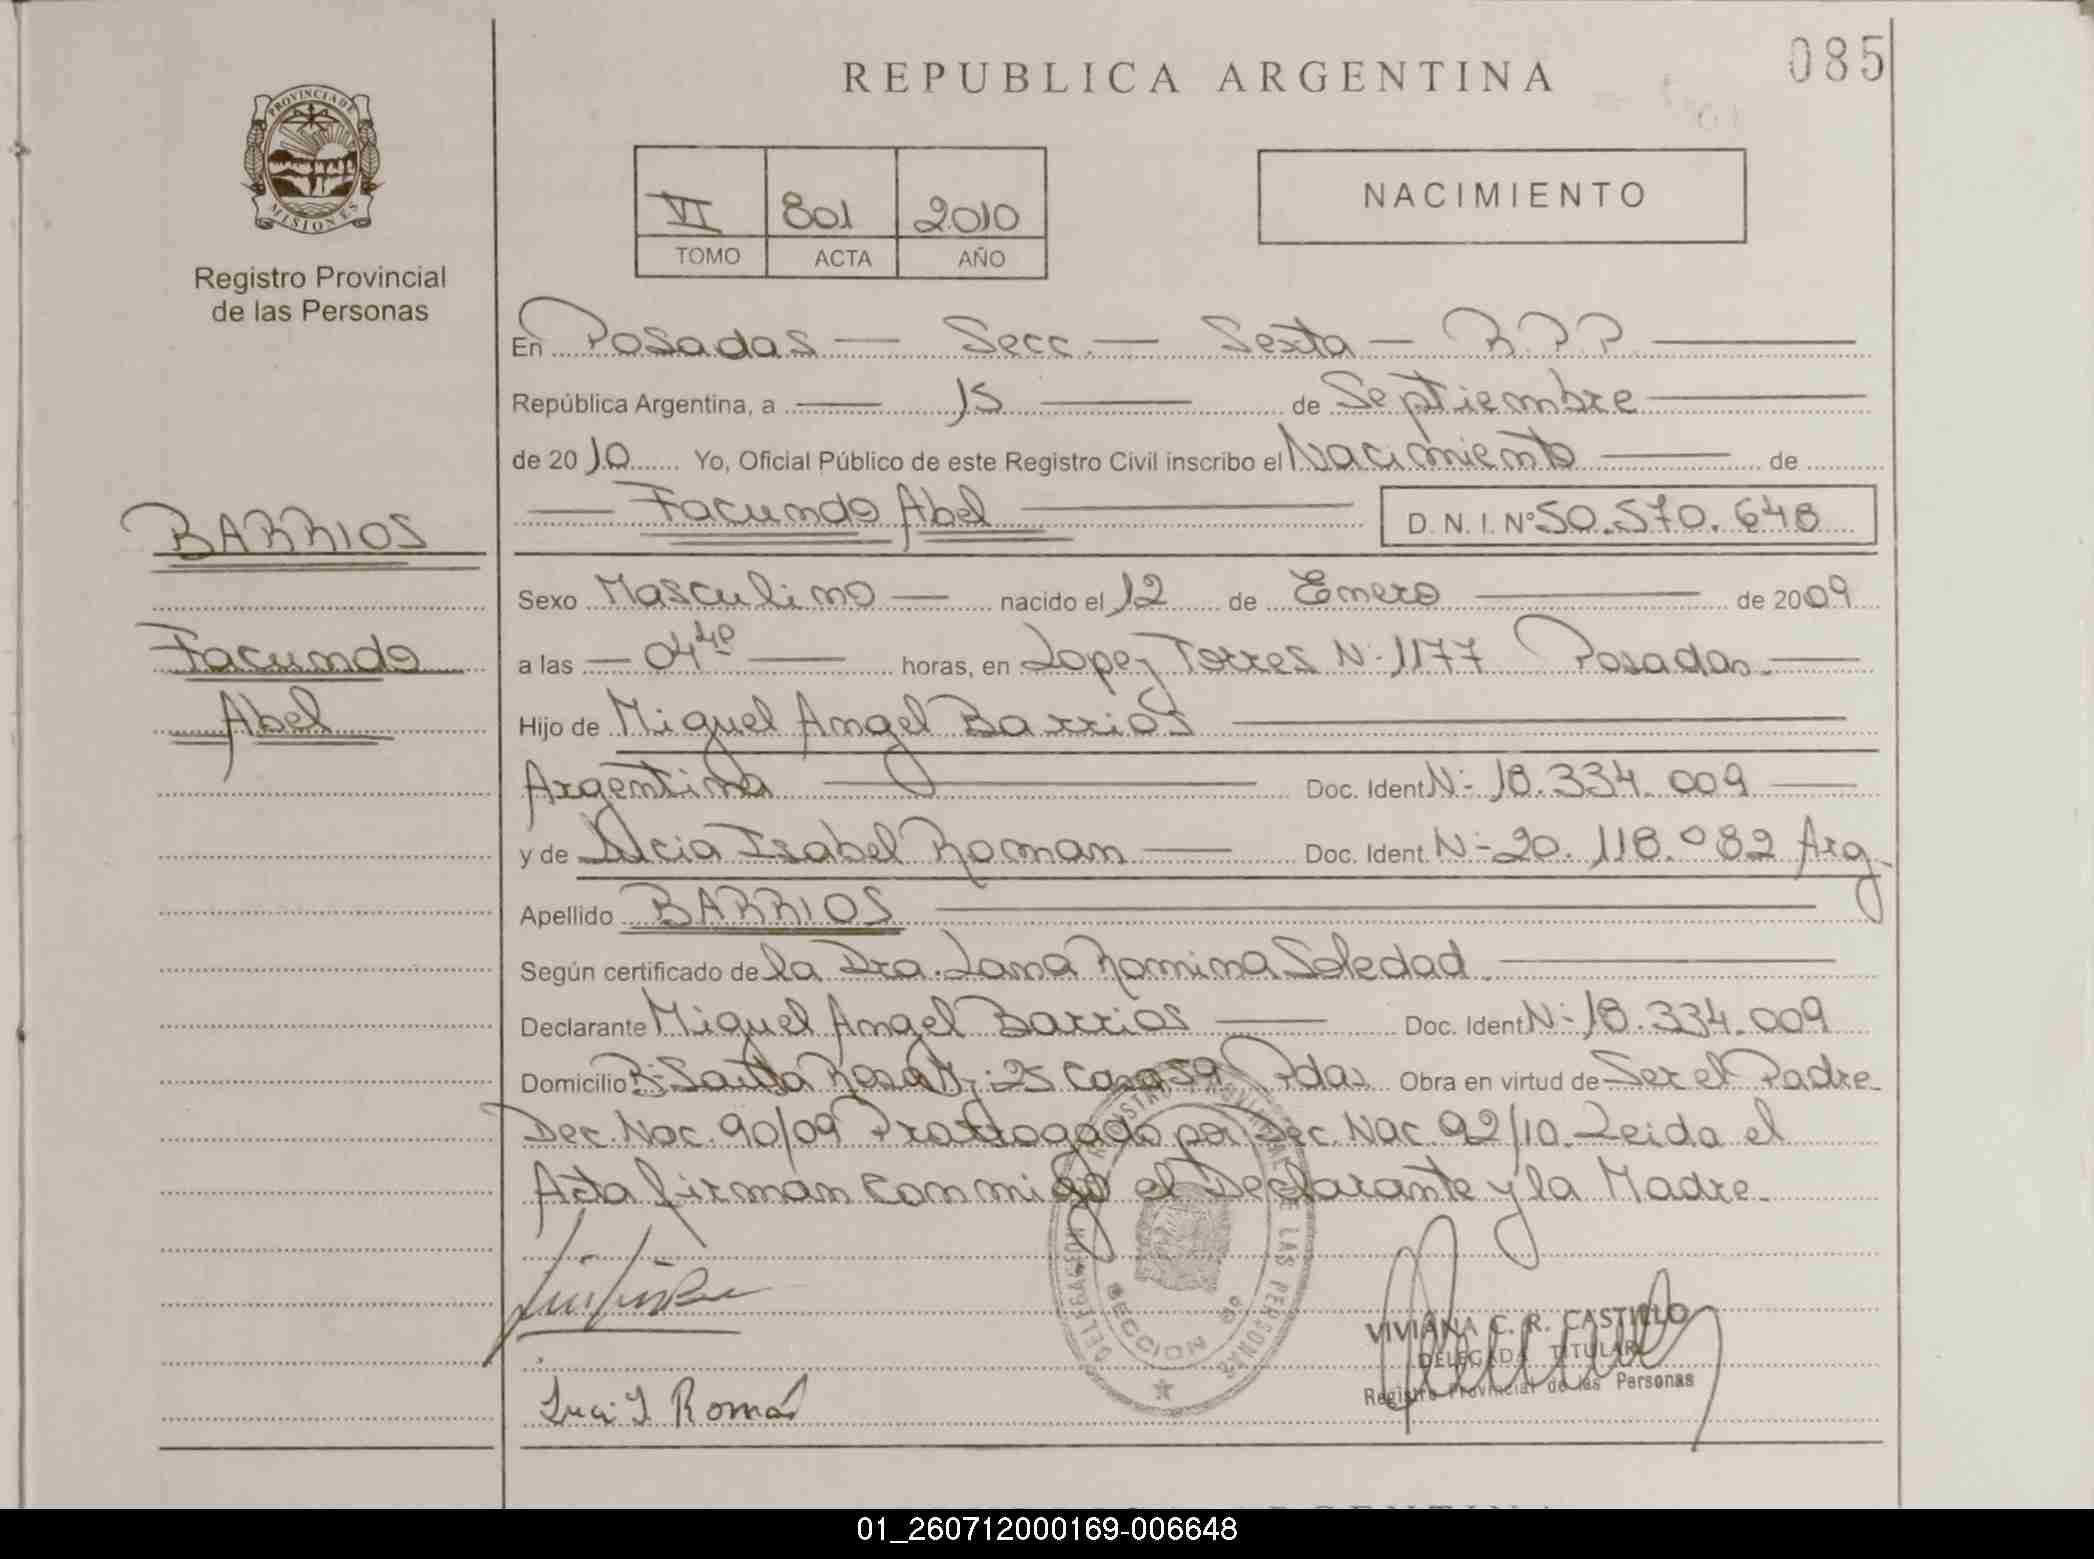 085
REPUBLICA ARGENTINA
PROVINCIA DE
MISIONES
Registro Provincial
de las Personas
VI 801 2010
TOMO ACTA AÑO
NACIMIENTO
BARRIOS
Facundo
Abel
En Posadas — Secc. — Sexta — R.P.P.
República Argentina, a — 15 — de Septiembre
de 2010 Yo, Oficial Público de este Registro Civil inscribo el Nacimiento — de
— Facundo Abel — D. N. I. Nº 50.570.648
Sexo Masculino — nacido el 12 de Enero — de 2009
a las — 04 40 — horas, en Lopez Torres N-1177 Posadas. —
Hijo de Miguel Angel Barrios
Argentina — Doc. Ident. N- 18.334.009 —
y de Isabel Roman — Doc. Ident. N- 20.118.082 Arg.
Apellido BARRIOS
Según certificado de la Dra. Romina Soledad.
Declarante Miguel Angel Barrios — Doc. Ident. N- 18.334.009
Domicilio B- Santa Rosa Mz. 25 Casa 59 Pdas. Obra en virtud de Ser el Padre
Dec. Nac. 90/09 Prorrogado por Dec. Nac. 92/10. Leida el
Acta firman conmigo el Declarante y la Madre.
REGISTRO PROVINCIAL DE LAS PERSONAS
DELEGACION
SECCION 6º
VIVIANA C. R. CASTILLO
DELEGADA TITULAR
Registro Provincial de las Personas
I Román
01_260712000169-006648